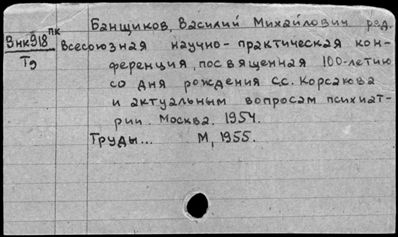 Банщиков, Василий Михайлович ред.
9нк918 пк
Т9
Всесоюзная научно-практическая кон-
ференция, посвященная 100-летию
со дня рождения С.С. Корсакова
и актуальным вопросам психиат-
рии. Москва. 1954.
Труды... М, 1955.